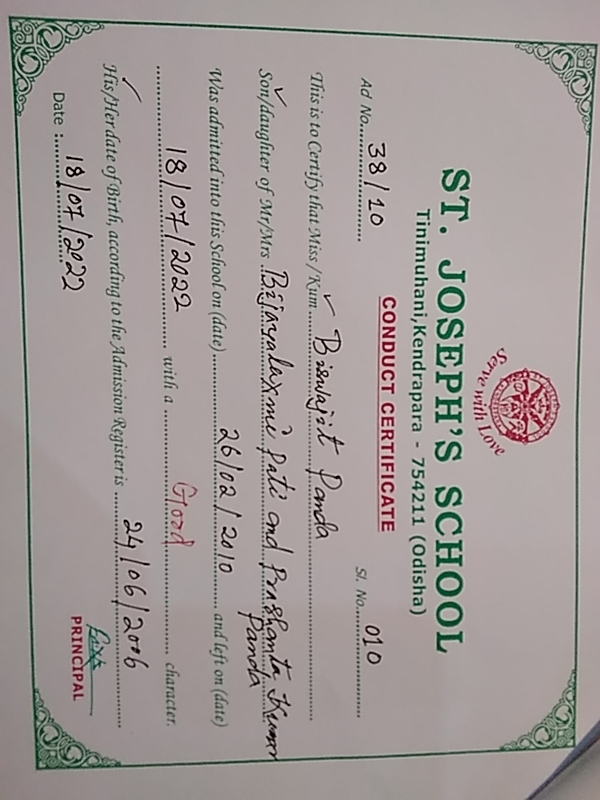 Serve with Love
ST. JOSEPH'S SCHOOL
Tinimuhani,Kendrapara - 754211 (Odisha)
CONDUCT CERTIFICATE
Ad No......38/10...... Sl. No....010......
This is to Certify that Miss / Kum....✓ Biswajit Panda......
Son/daughter of Mr/Mrs ..Bijayalaxmi Pati and Prashanta Kumar
Panda
Was admitted into this School on (date) ......26/02/2010...... and left on (date)
......18/07/2022...... with a ......Good...... character.
His/Her date of Birth, according to the Admission Register is ......24/06/2006......
Date :...18/07/2022
PRINCIPAL